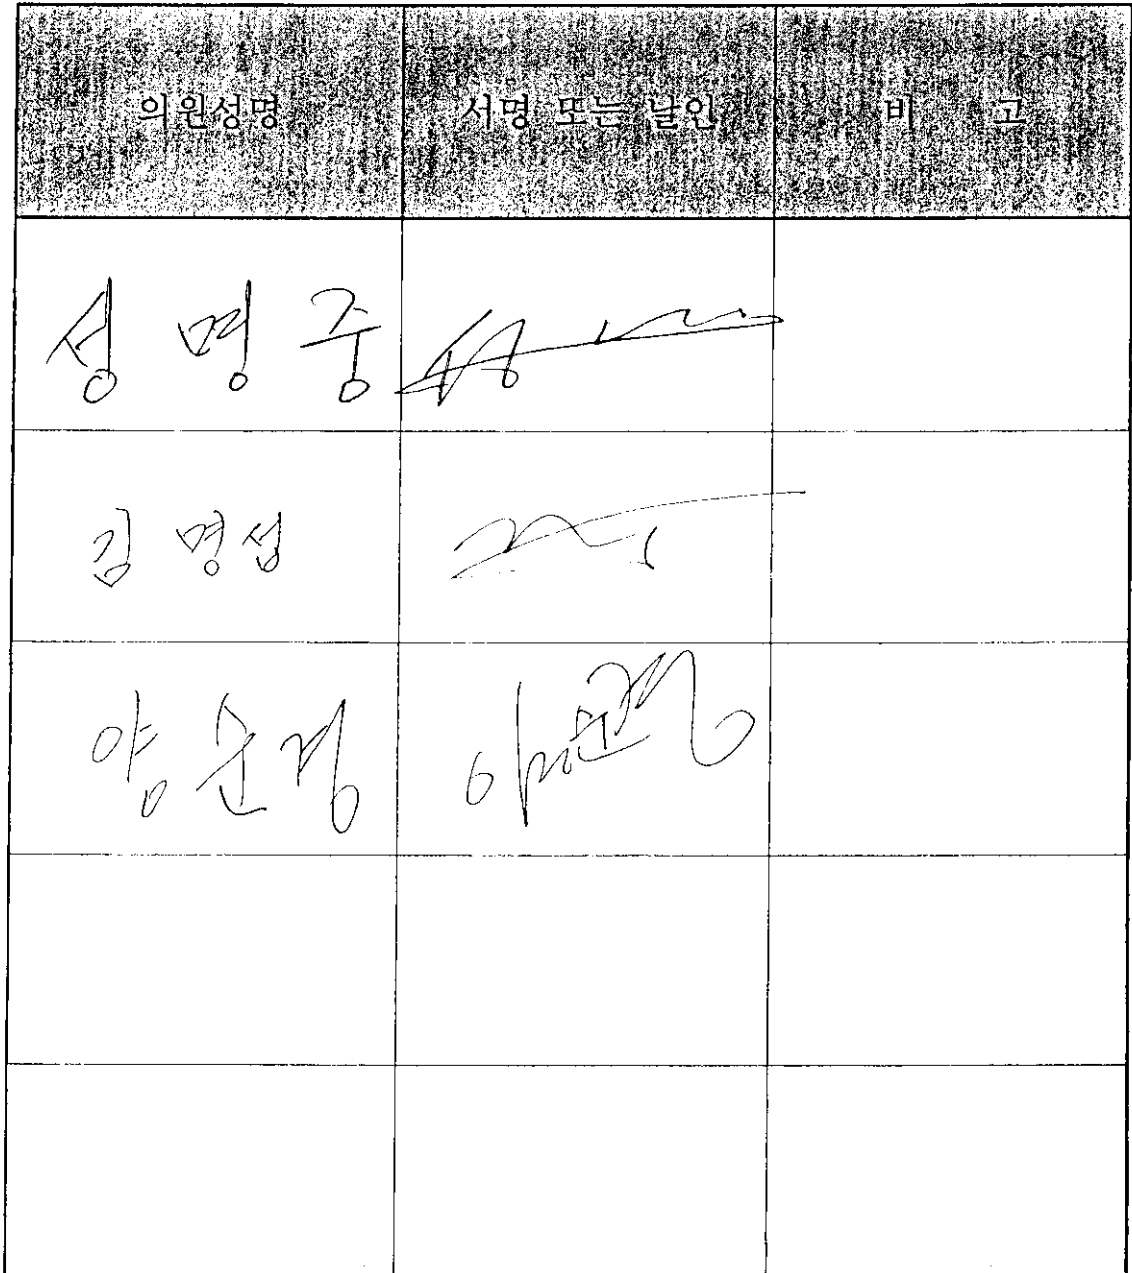 의원성명 서명 또는 날인 비 고
성 명 중
김 명 섭
양 순 경 양순경